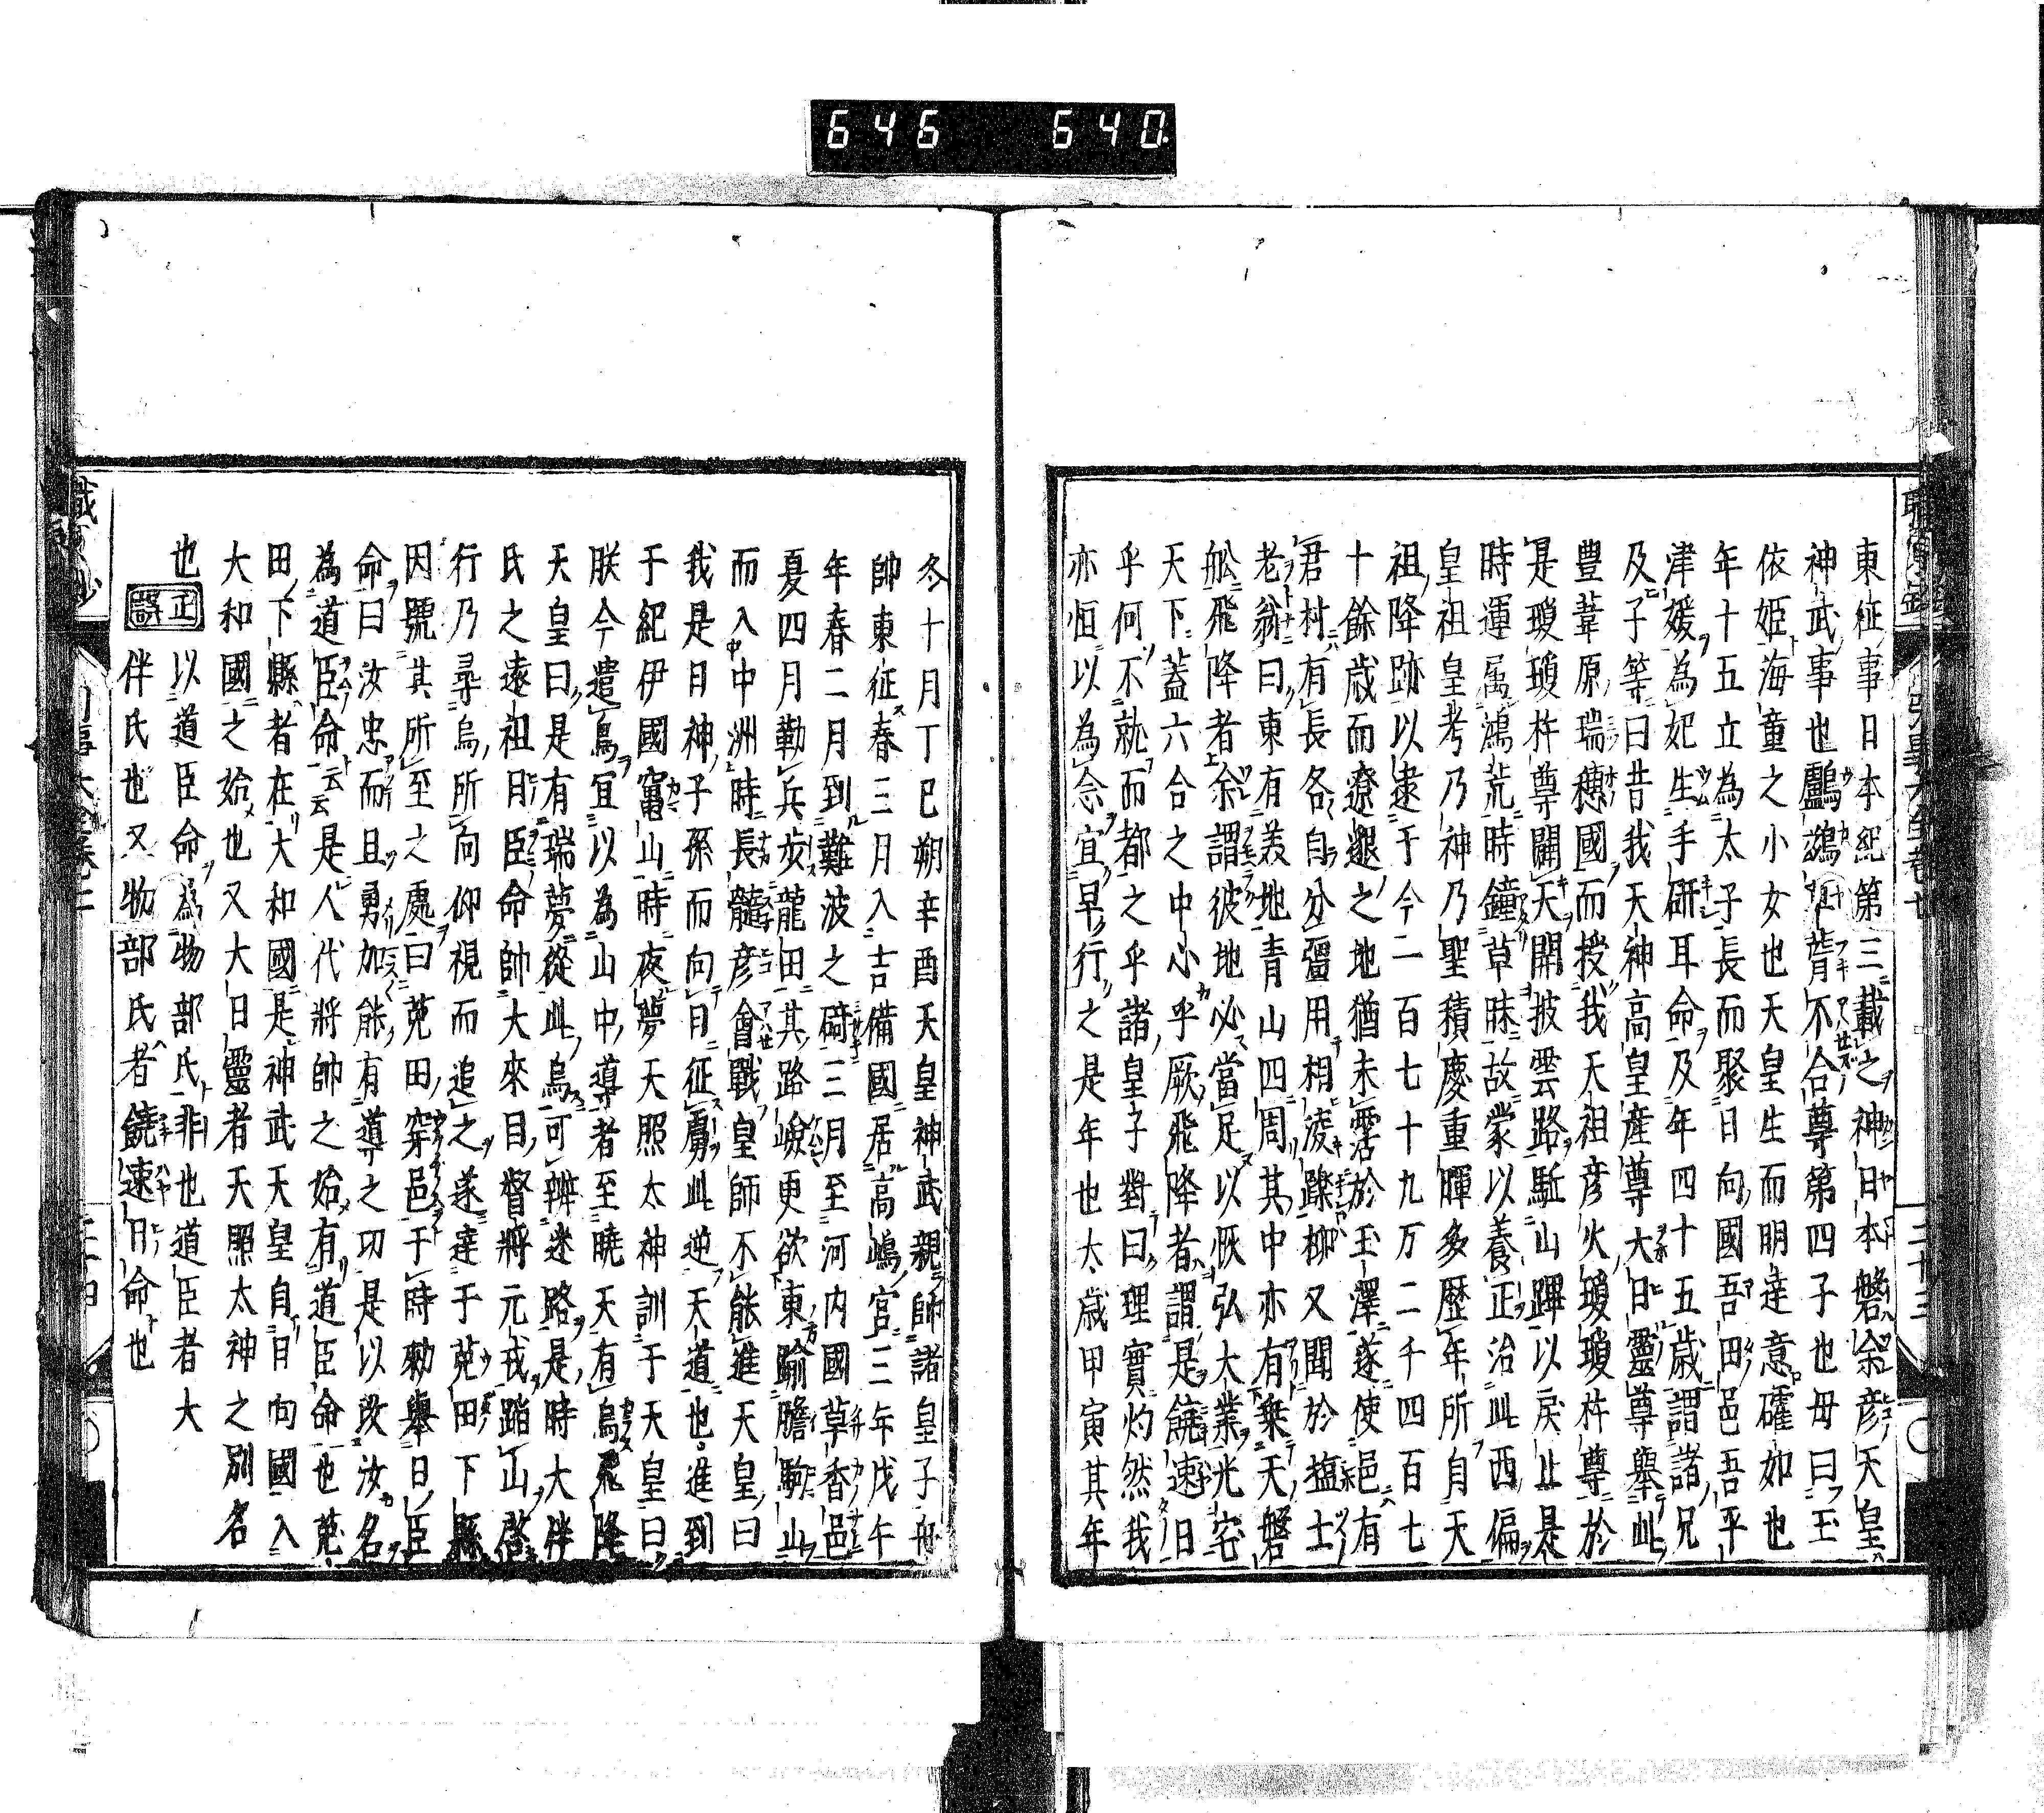 646 640
東征事日本紀第三載之神日本磐余彦天皇
神武事也鸕鷀草葺不合尊第四子也母曰玉
依姫海童之小女也天皇生而明達意確如也
年十五立為太子長而聚日向國吾田邑吾平
津媛為妃生手研耳命及年四十五歳謂諸兄
及子等曰昔我天神高皇産尊大日孁尊舉此
豊葦原瑞穗國而授我天祖彦火瓊瓊杵尊於
是瓊瓊杵尊闢天開披雲路駈山蹕以戻止是
時運属鴻荒時鐘草昧故蒙以養正治此西偏
皇祖皇考乃神乃聖積慶重暉多歷年所自天
祖降跡以逮于今二百七十九万二千四百七
十餘歳而遼邈之地猶未霑於玉澤遂使邑有
君村有長各自分彊用相凌躒柳又聞於塩士
老翁曰東有美地青山四周其中亦有乗天磐
舩飛降者余謂彼地必當足以恢弘大業光宅
天下蓋六合之中心乎厥飛降者謂是饒速日
乎何不就而都之乎諸皇子對曰理實灼然我
亦恒以為念宜早行之是年也太歳甲寅其年
冬十月丁巳朔辛酉天皇神武親帥諸皇子舟
帥東征春三月入吉備國居高嶋宮三年戊午
年春二月到難波之碕三月至河内國草香邑
夏四月勒兵歩龍田其路嶮更欲東踰膽駒山
而入中洲時長髓彦會戰皇師不能進天皇曰
我是日神子孫而向日征虜此逆天道也進到
于紀伊國竃山時夜夢天照太神訓于天皇曰
朕今遣烏宜以為山中導者至曉天有烏飛降
天皇曰是有瑞夢從此烏可辨迷路是時大伴
氏之遠祖日臣命帥大來目督將元戎蹈山啓
行乃尋烏所向仰視而追之遂達于菟田下縣
因號其所至之處曰菟田穿邑于時勅擧日臣
命曰汝忠而且勇加能有導之功是以改汝名
為道臣命云云是人代將帥之始有道臣命也菟
田下縣者在大和國是神武天皇自日向國入
大和國之始也又大日孁者天照太神之別名
也正 以道臣命為物部氏非也道臣者大
伴氏也又物部氏者饒速日命也